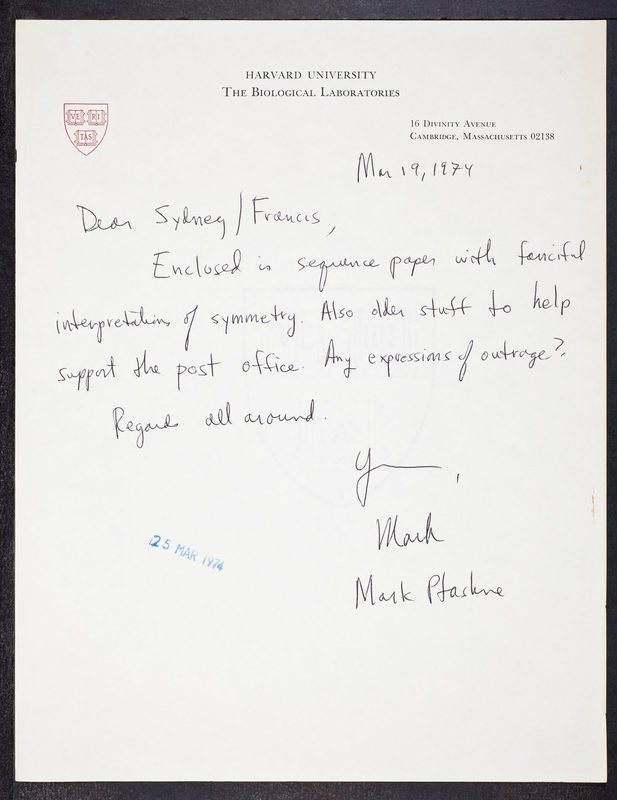 HARVARD UNIVERSITY
THE BIOLOGICAL LABORATORIES
VE RI
TAS
16 DIVINITY AVENUE
CAMBRIDGE, MASSACHUSETTS 02138
Mar 19, 1974
Dear Sydney/Francis,
Enclosed is sequence paper with fanciful
interpretations of symmetry. Also older stuff to help
support the post office. Any expressions of outrage?
Regards all around.
Mark
Mark Ptashne
25 MAR 1974